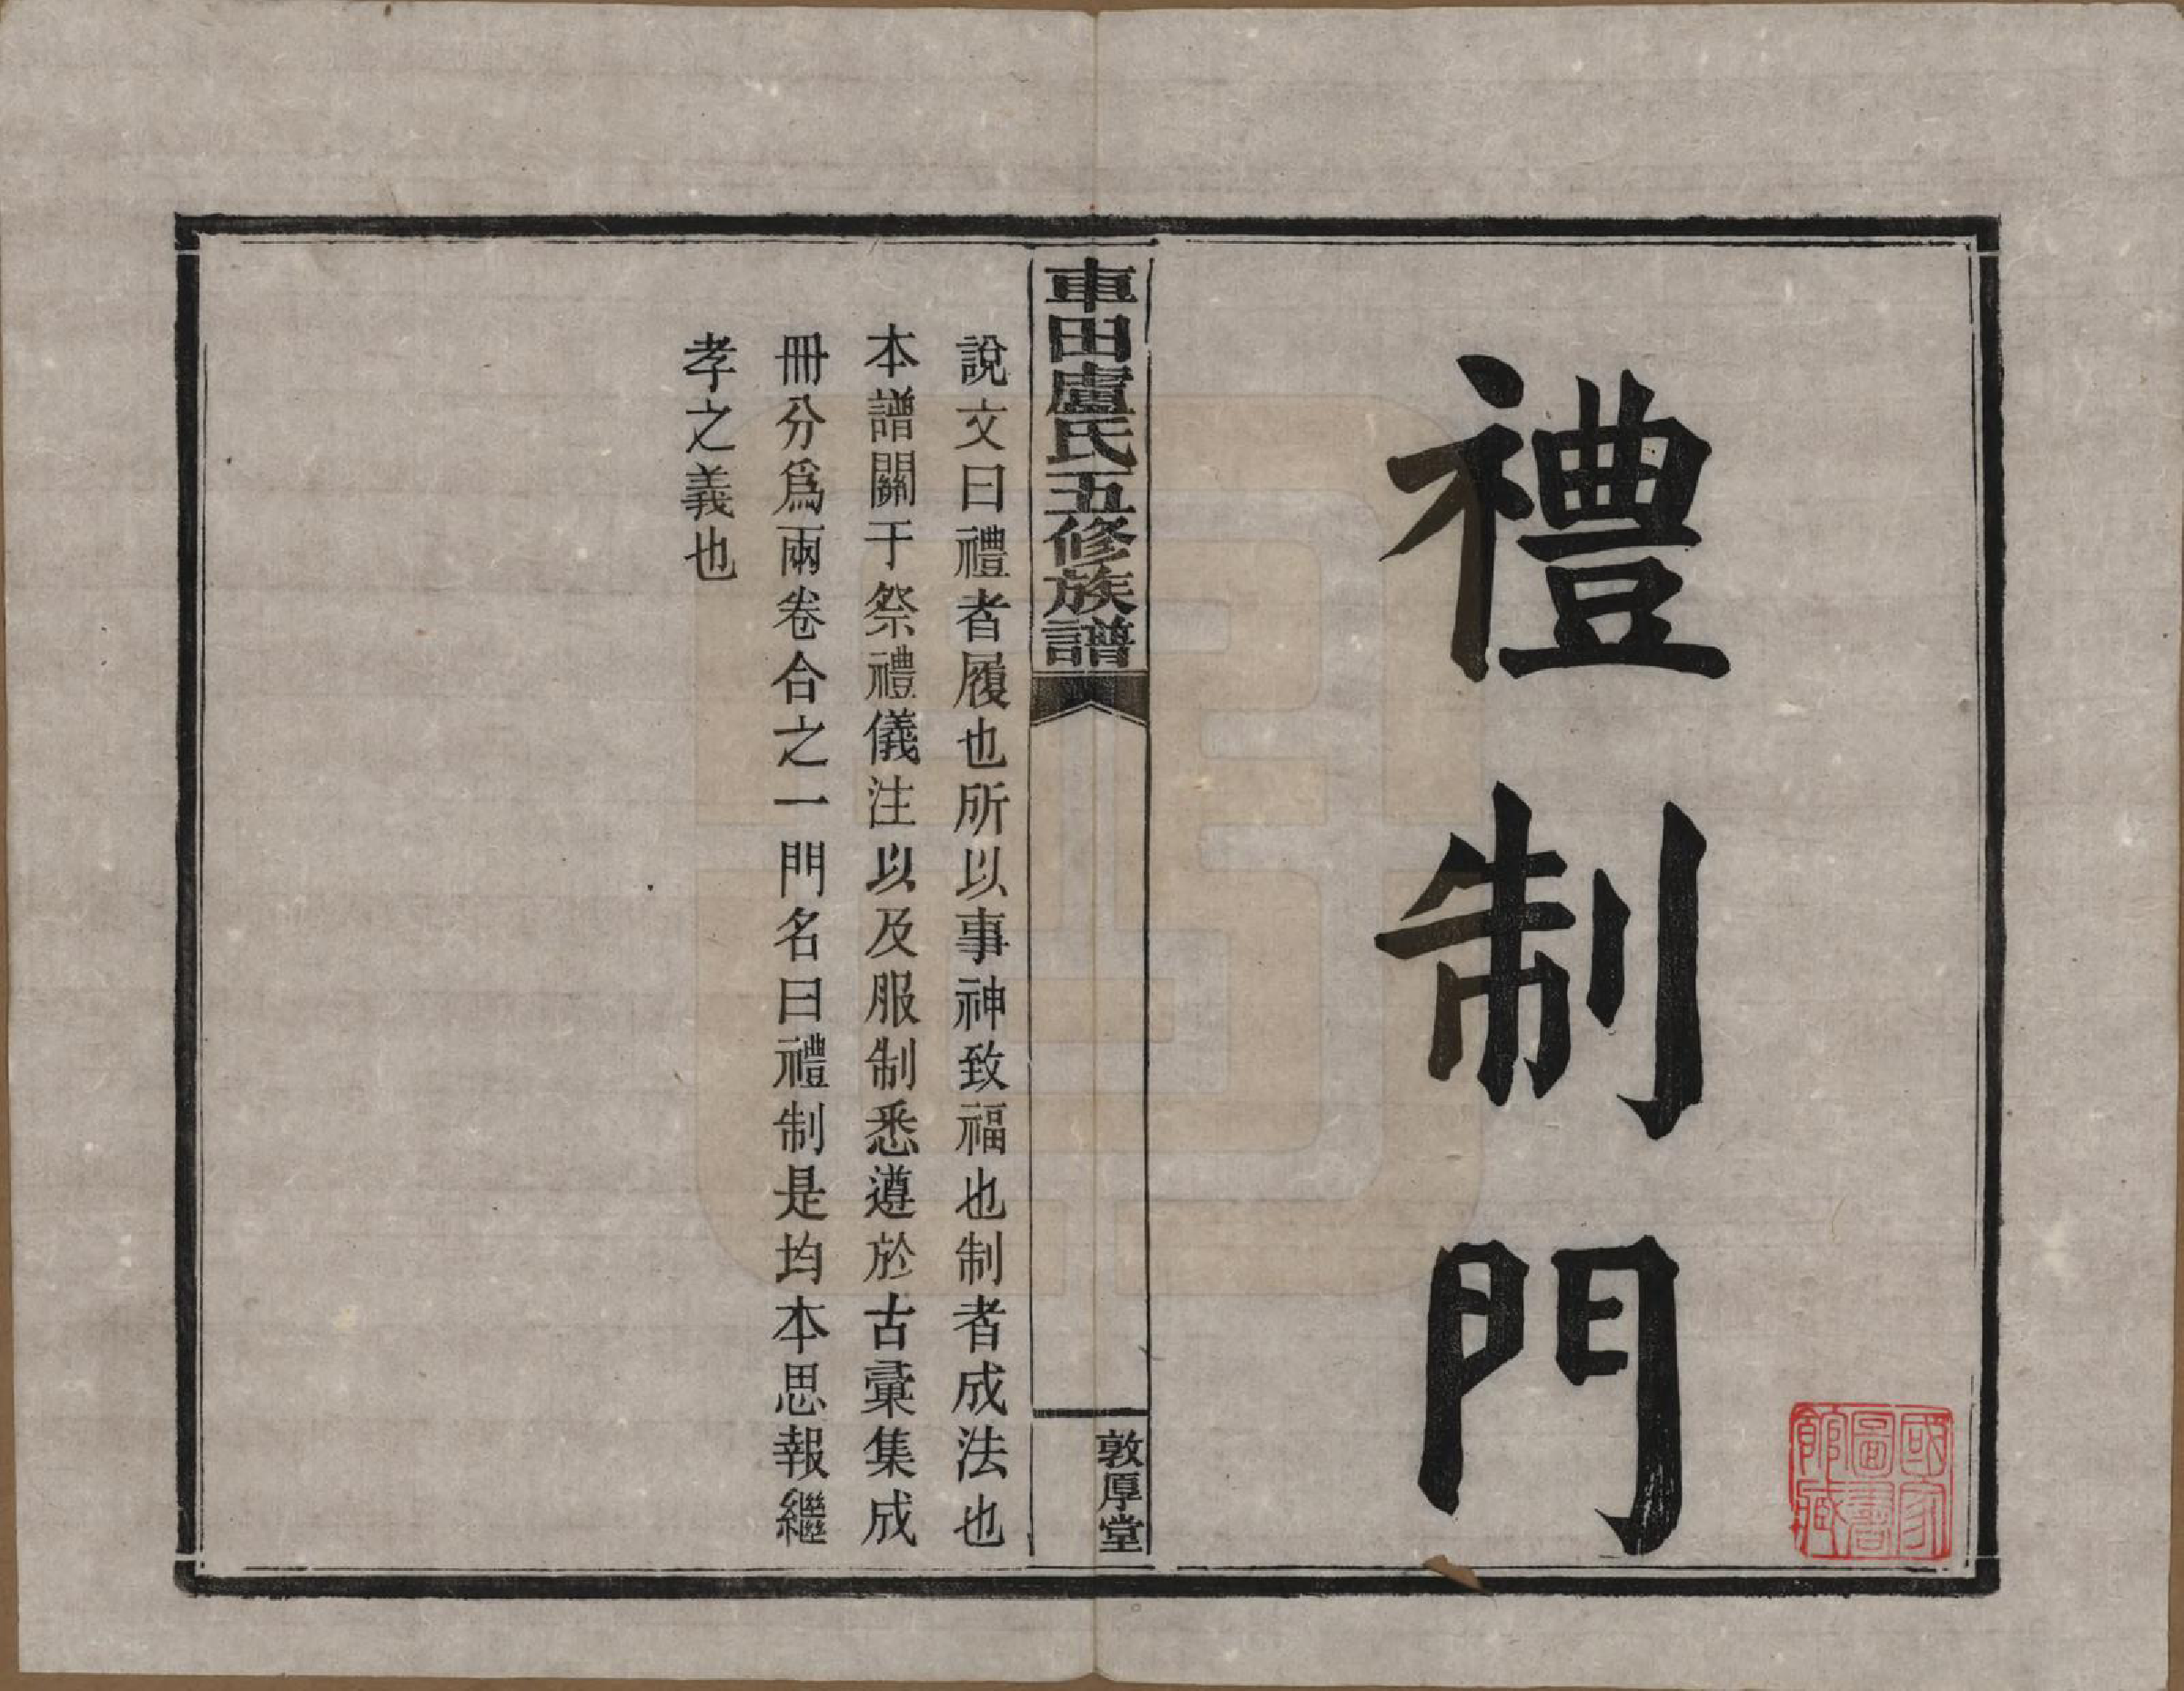 禮制門
國家
圖書
館藏
車田盧氏五修族譜
敦厚堂
說文曰禮者履也所以事神致福也制者成法也
本譜關于祭禮儀注以及服制悉遵於古彙集成
冊分爲兩卷合之一門名曰禮制是均本思報繼
孝之義也